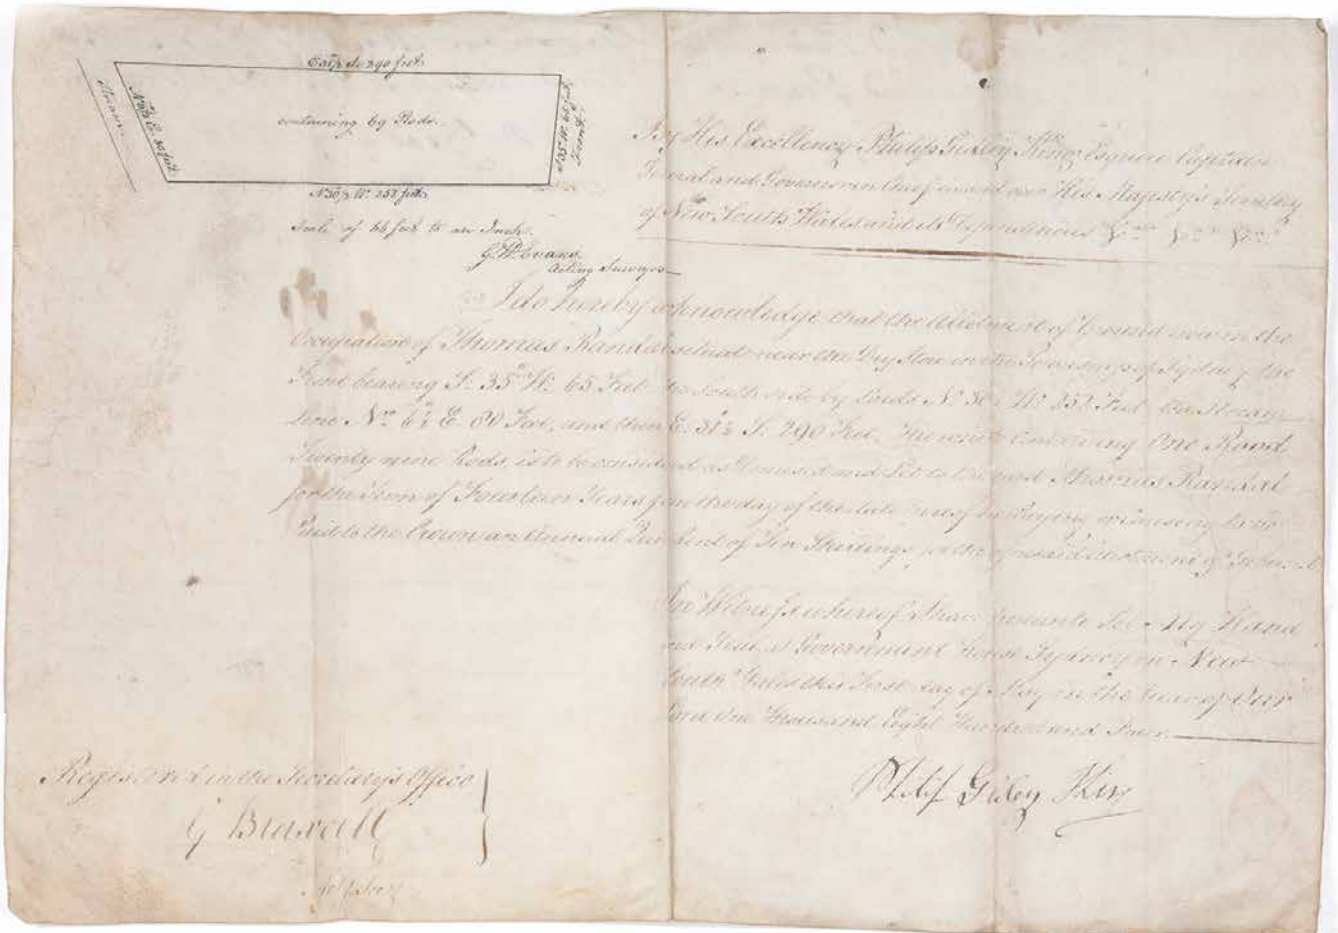 E 31½ S. 290 feet
Stream
N 6½ E. 80 feet
containing 69 Rods.
S 35 W. 65 feet
Front
N 30½ W. 252 feet
Scale of 66 feet to an Inch.
G. W. Evans
Acting Surveyor
By His Excellency Philip Gidley King Esquire Captain
General and Governor in Chief in and over His Majesty's Territory
of New South Wales and its Dependencies &c &c &c
I do hereby acknowledge that the Allotment of Ground now in the
Occupation of Thomas Randal situate near the Dry Store in the Township of Sydney the
Front bearing S. 35 W. 65 Feet the South side by Lords N. 30½ W. 252 Feet the Stream
line N. 6½ E. 80 Feet, and then E. 31½ S. 290 Feet, the whole containing One Rood
Twenty nine Rods, is to be considered as leased and Let to the said Thomas Randal
for the Term of Fourteen Years from the day of the date hereof he Paying or causing to be
Paid to the Crown an Annual Quit Rent of Ten Shillings for the aforesaid Allotment of Ground
In Witness whereof I have hereunto Set My Hand
and Seal at Government House Sydney in New
South Wales this First day of May in the Year of Our
Lord One Thousand Eight Hundred and
Registered in the Secretary's Office
G Blaxcell
Act. Secy
Philip Gidley King